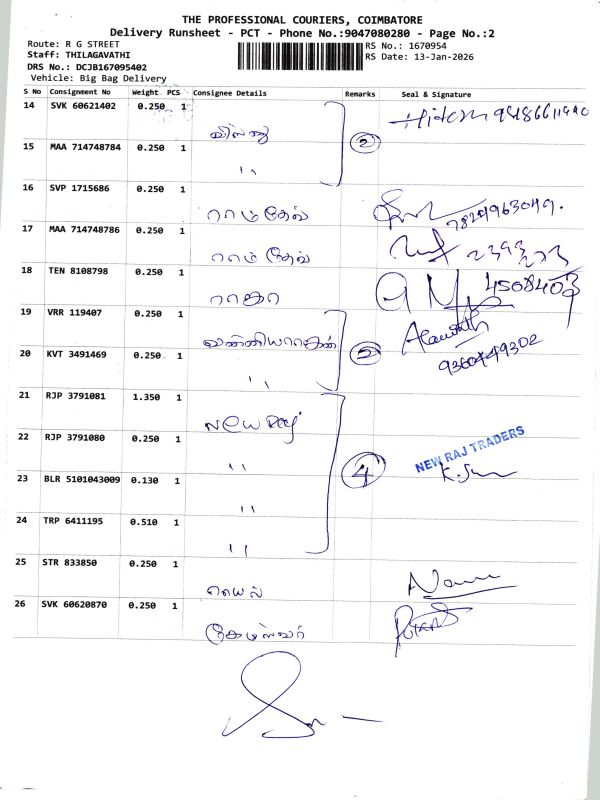 THE PROFESSIONAL COURIERS, COIMBATORE
Delivery Runsheet - PCT - Phone No.:9047080280 - Page No.:2
Route: R G STREET
Staff: THILAGAVATHI
DRS No.: DCJB167095402
Vehicle: Big Bag Delivery
RS No.: 1670954
RS Date: 13-Jan-2026
S No Consignment No Weight PCS Consignee Details Remarks Seal & Signature
14 SVK 60621402 0.250 1
2
15 MAA 714748784 0.250 1
"
16 SVP 1715686 0.250 1
ராம்தேவ்
17 MAA 714748786 0.250 1
ராம் தேவ்
18 TEN 8108798 0.250 1
ராஜா
19 VRR 119407 0.250 1
2
9360449302
20 KVT 3491469 0.250 1
"
21 RJP 3791081 1.350 1
New Raj
22 RJP 3791080 0.250 1
"
4
NEW RAJ TRADERS
23 BLR 5101043009 0.130 1
"
24 TRP 6411195 0.510 1
"
25 STR 833850 0.250 1
26 SVK 60620870 0.250 1